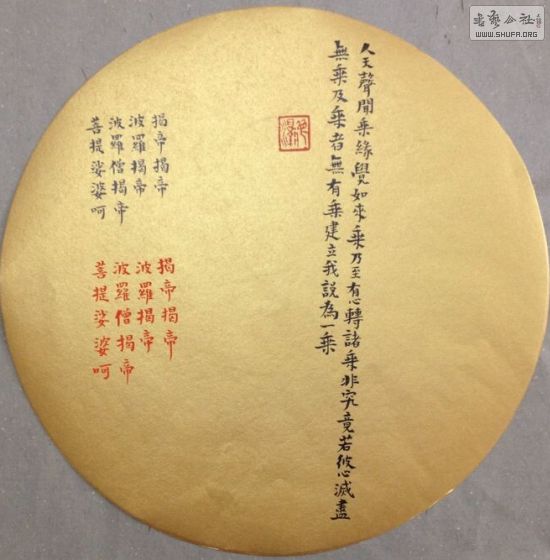 書藝公社
WWW.SHUFA.ORG
人天聲聞乘緣覺如來乘乃至有心轉諸乘非究竟若彼心滅盡
無乘及乘者無有乘建立我說為一乘
揭帝揭帝
波羅揭帝
波羅僧揭帝
菩提娑婆呵
揭帝揭帝
波羅揭帝
波羅僧揭帝
菩提娑婆呵